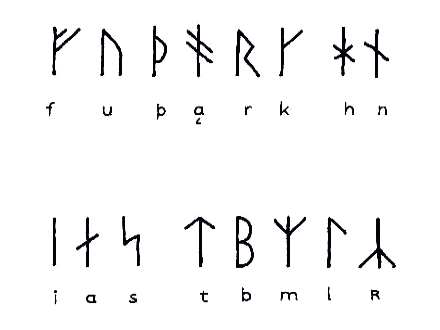 ᚠ ᚢ ᚦ ᚬ ᚱ ᚴ ᚼ ᚾ
f u þ ą r k h n
ᛁ ᛅ ᛋ ᛏ ᛒ ᛘ ᛚ ᛦ
i a s t b m l ʀ